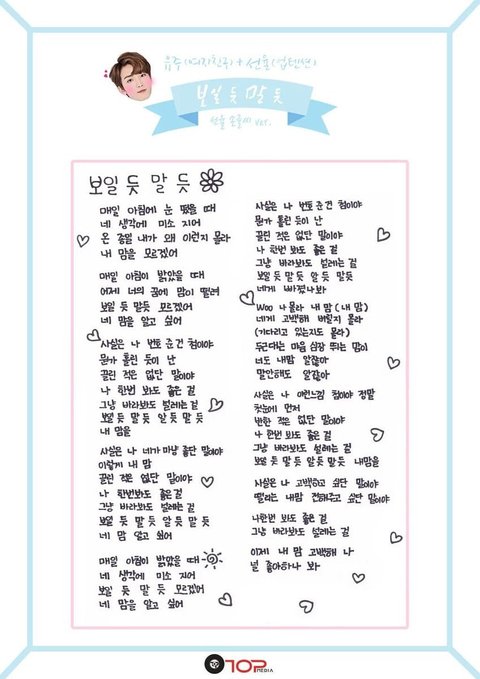 유주(여자친구) + 선율(업텐션)
보일 듯 말 듯
선율 손글씨 ver.
보일 듯 말 듯
매일 아침에 눈 떴을 때
네 생각에 미소 지어
온 종일 내가 왜 이런지 몰라
내 맘을 모르겠어
매일 아침이 밝았을 때
어제 너의 꿈에 맘이 떨려
보일 듯 말듯 모르겠어
네 맘을 알고 싶어
사실은 나 번호 준 건 첨이야
뭔가 홀린 듯이 난
끌린 적은 없단 말이야
나 한번 봐도 좋은 걸
그냥 바라봐도 설레는 걸
보일 듯 말 듯 알 듯 말 듯
내 맘을
사실은 나 네가 마냥 좋단 말이야
이렇게 내 맘
끌린 적은 없단 말이야
나 한번봐도 좋은 걸
그냥 바라봐도 설레는 걸
보일 듯 말 듯 알 듯 말 듯
네 맘 알고 싶어
매일 아침이 밝았을 때
네 생각에 미소 지어
보일 듯 말 듯 모르겠어
네 맘을 알고 싶어
사실은 나 번호 준 건 첨이야
뭔가 홀린 듯이 난
끌린 적은 없단 말이야
나 한번 봐도 좋은 걸
그냥 바라봐도 설레는 걸
보일 듯 말 듯 알 듯 말듯
네게 빠졌나봐
Woo 나 몰라 내 맘 (내 맘)
네게 고백해 버릴지 몰라
(기다리고 있는지도 몰라)
두근대는 마음 심장 뛰는 맘이
너도 내맘 알잖아
말안해도 알잖아
사실은 나 이런느낌 첨이야 정말
첫눈에 먼저
반한 적은 없단 말이야
나 한번 봐도 좋은 걸
그냥 바라봐도 설레는 걸
보일 듯 말 듯 알 듯 말 듯 내맘을
사실은 나 고백하고 싶단 말이야
떨리는 내맘 전해주고 싶단 말이야
나한번 봐도 좋은 걸
그냥 바라봐도 설레는 걸
이제 내 맘 고백해 나
널 좋아하나 봐
TOP MEDIA